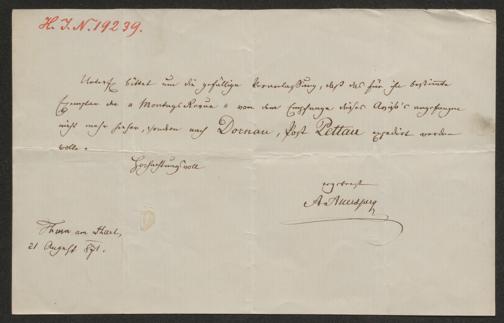 H. I. N. 19239.
Unterz. bittet um die gefällige Veranlassung, daß das für ihn bestimmte
Exemplar der „Montags Revue“ von dem Empfange dieses Aviso's angefangen
nicht mehr hieher, sondern nach Dornau, Post Pettau expedirt werden
wolle.
Hochachtungsvoll
ergebenst
A. Auersperg
Thurn am Hart,
21 August 871.